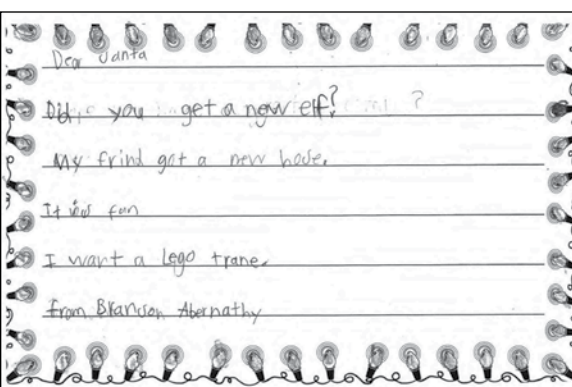 Dear Santa
Did you get a new elf?
My frind got a new house.
It was fun
I want a Lego trane.
from Branson Abernathy